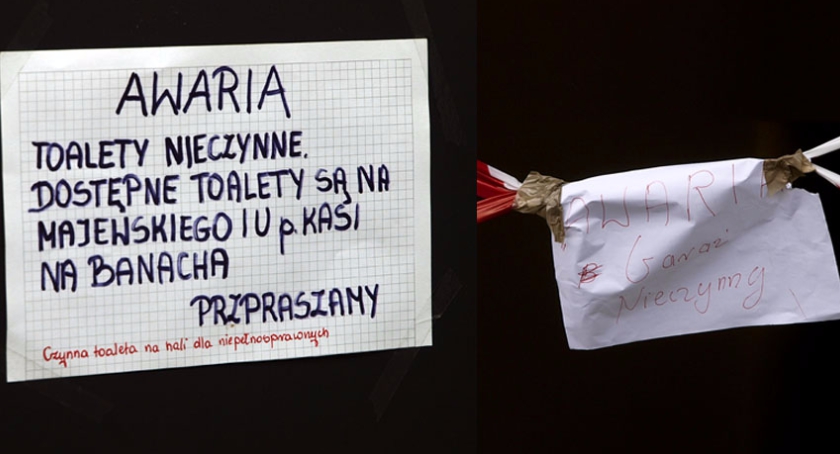 AWARIA
TOALETY NIECZYNNE.
DOSTĘPNE TOALETY SĄ NA
MAJEWSKIEGO I U p. KASI
NA BANACHA
PRZPRASZAMY
Czynna toaleta na hali dla niepełnosprawnych
AWARIA
Garaż
Nieczynny